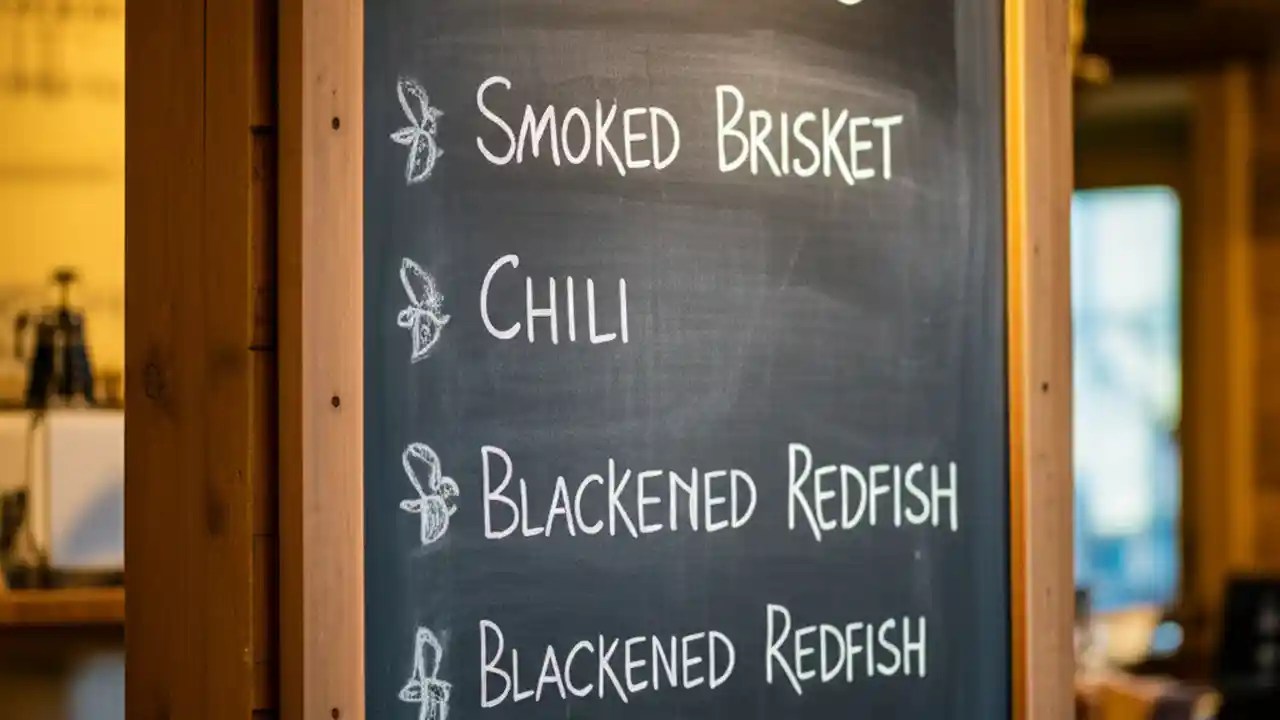 SMOKED BRISKET
CHILI
BLACKENED REDFISH
BLACKENED REDFISH